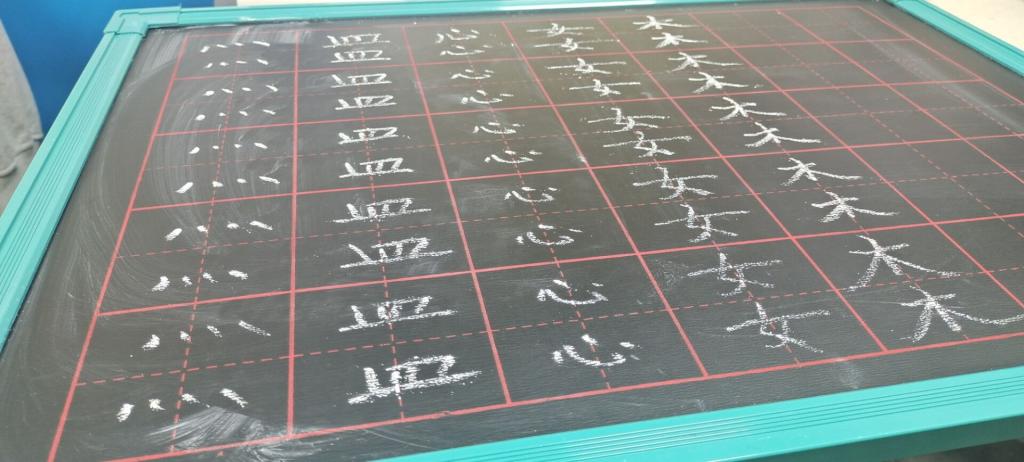 灬 皿 心 女 木
灬 皿 心 女 木
灬 皿 心 女 木
灬 皿 心 女 木
灬 皿 心 女 木
灬 皿 心 女 木
灬 皿 心 女 木
灬 皿 心 女 木
灬 皿 心 女 木
灬 皿 心 女 木